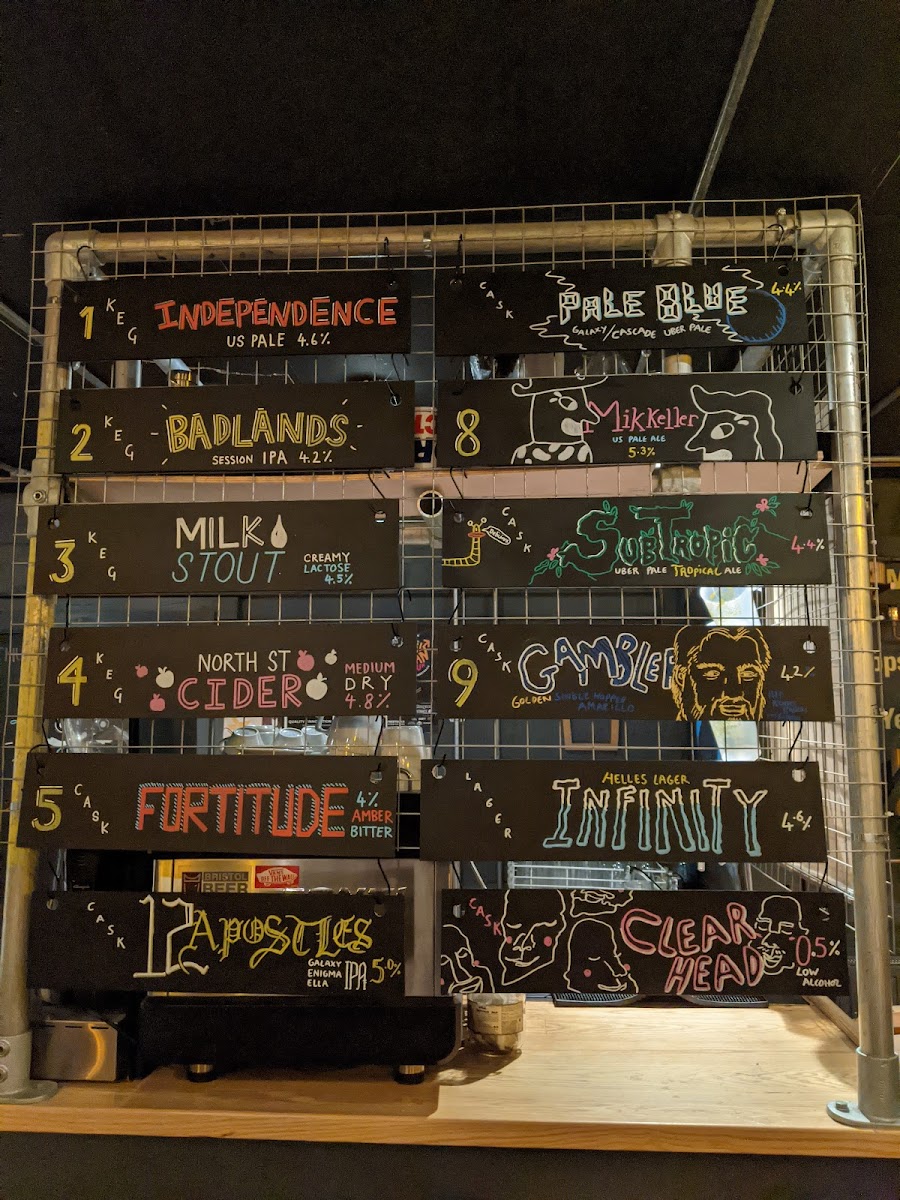 1 KEG INDEPENDENCE
US PALE 4.6%
2 KEG BADLANDS
SESSION IPA 4.2%
3 KEG MILK
STOUT
CREAMY
LACTOSE
4.5%
4 KEG NORTH ST
CIDER
MEDIUM
DRY
4.8%
5 CASK FORTITUDE
4%
AMBER
BITTER
BRISTOL
BEER
VANS
OFF THE WALL
CASK 12 APOSTLES
GALAXY
ENIGMA
ELLA
IPA 5.0%
CASK PALE BLUE 4.4%
GALAXY/CASCADE UBER PALE
8 Mikkeller
US PALE ALE
5.3%
CASK SUBTROPIC 4.4%
UBER PALE TROPICAL ALE
9 CASK GAMBLER 4.2%
GOLDEN SINGLE HOPPED
AMARILLO
LAGER HELLES LAGER
INFINITY 4.6%
CASK CLEAR
HEAD
0.5%
LOW
ALCOHOL